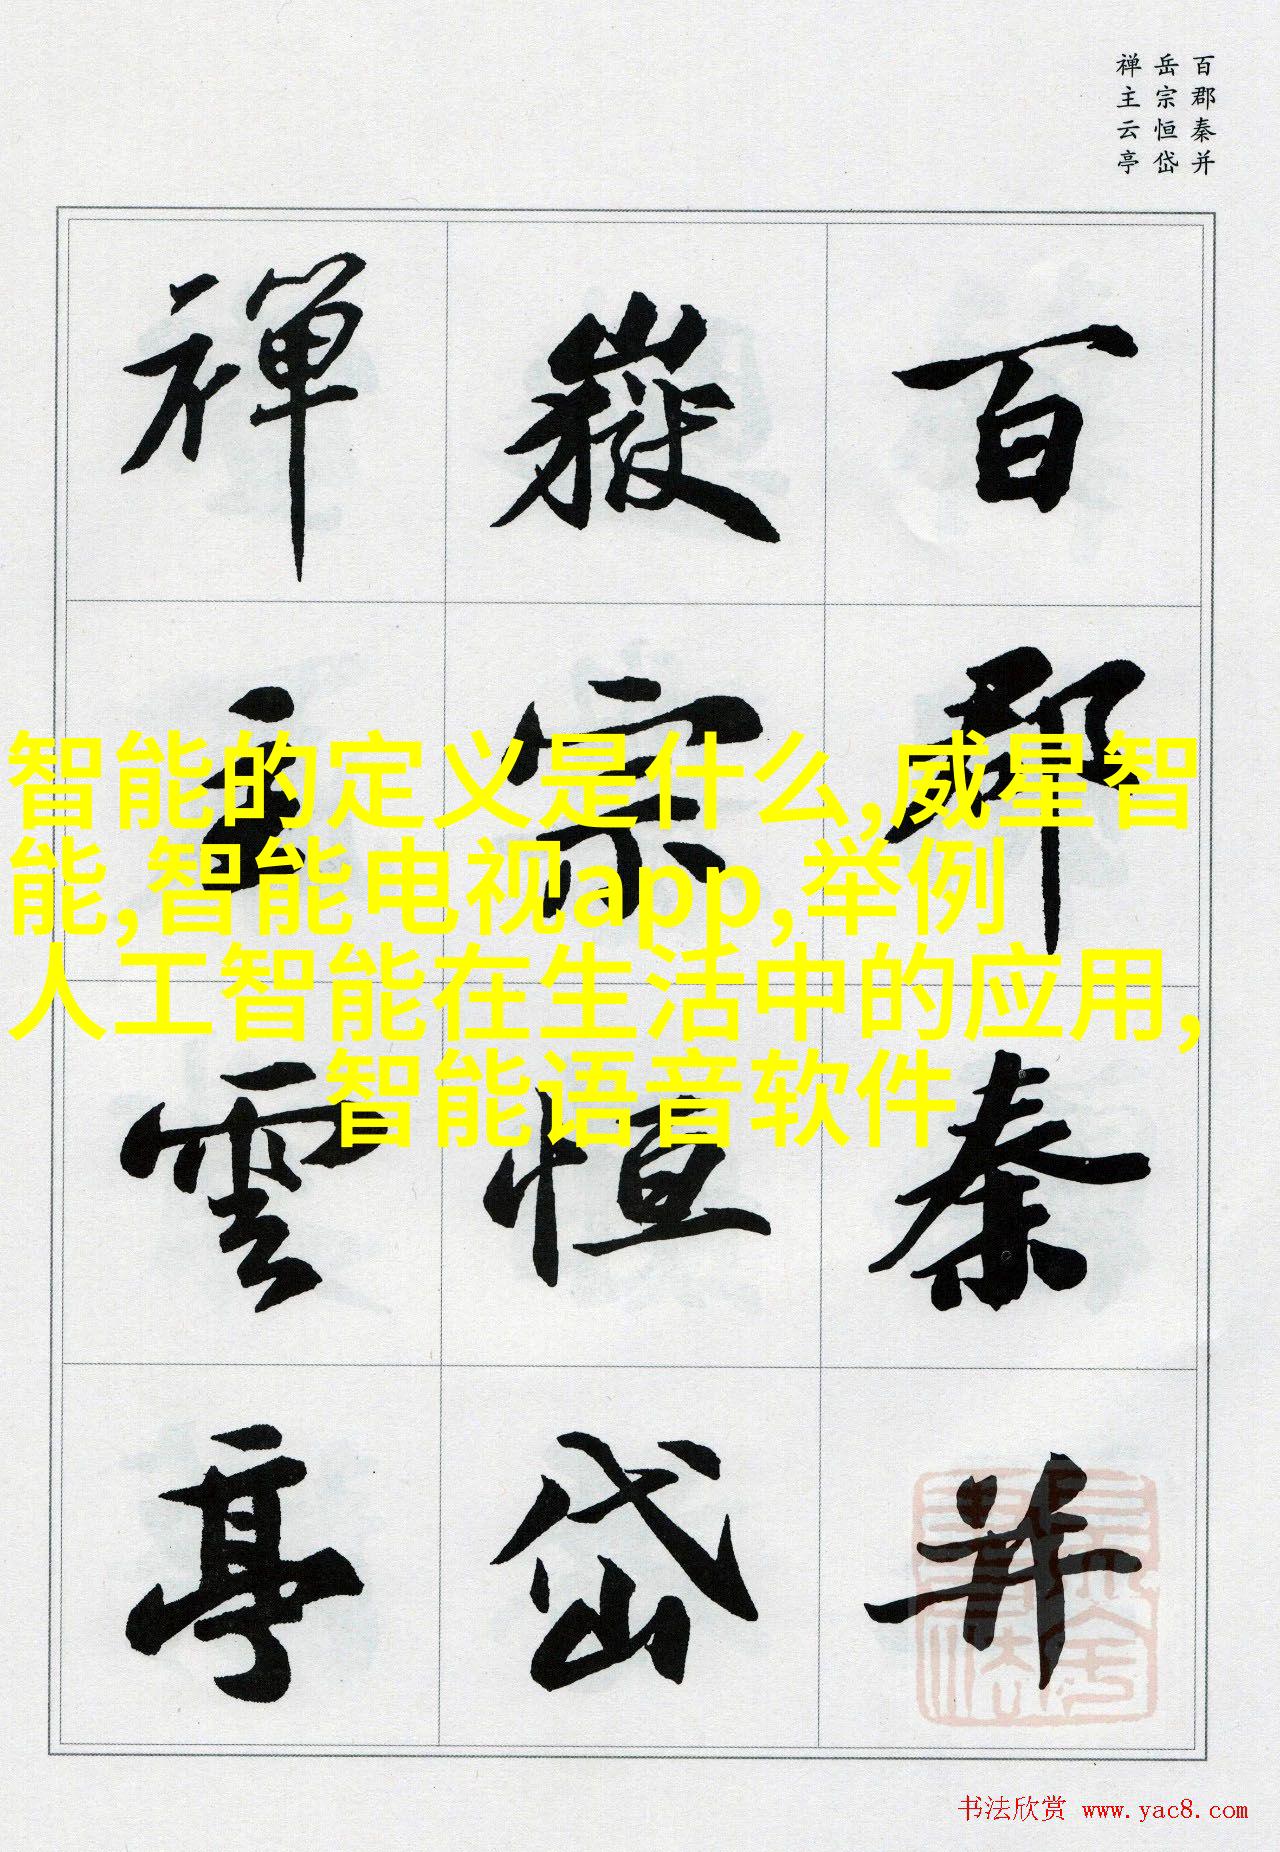 百郡秦并
岳宗恒岱
禅主云亭
百郡秦并
嶽宗恒岱
禪主雲亭
智能的定义是什么,威星智
能,智能电视app,举例
人工智能在生活中的应用,
智能语音软件
书法欣赏 www.yac8.com